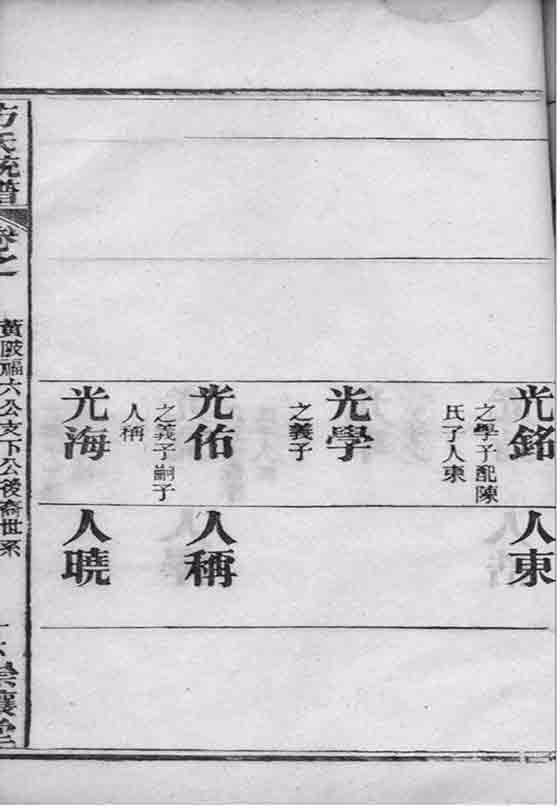 光銘
之學子配陳
氏子人東
光學
之義子
光佑
之義子嗣子
人稱
光海
人東
人稱
人曉
方氏統譜
卷之
黃陂福六公支下公後裔世系